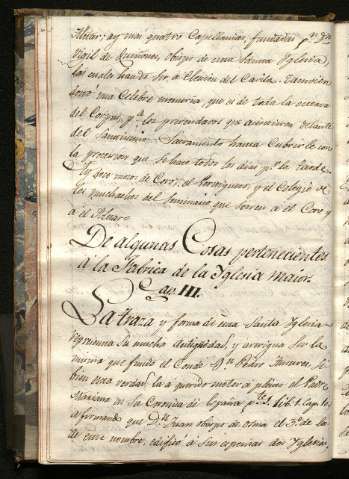 Altar; ay mas quatro Capellanias, fundadas pr Dn
Vigil de Quiñones, obispo de esta Santa Yglesia,
las cuales han de ser a eleccion del Cavildo. Tambien
una Celebre memoria, que es de toda la octava
del Corpus, pa los prevendados qe asistieren delante
del Santisimo Sacramento hasta Cubrirle con
la procesion que se hace todos los dias pr la tarde.
Ay seis mozos de Coro, y el Colegio de
los muchachos del Seminario que sirven a el Coro y
a el Altar.
De algunas Cosas pertenecientes
a la Fabrica de la Yglesia maior.
Cap III.
La traza, y forma de esta Santa Yglesia
su mucha antiguedad, y arrigua ser la
misma que fundó el Conde Dn Pedro Ansures, si
bien esta verdad la a querido el Padre
Mariana en su Coronica de España pte 1. lib. 1. Cap. 10.
afirmando que Dn Juan obispo de Osma el 3o de
de este nombre, edificó a sus expensas dos Yglesias,